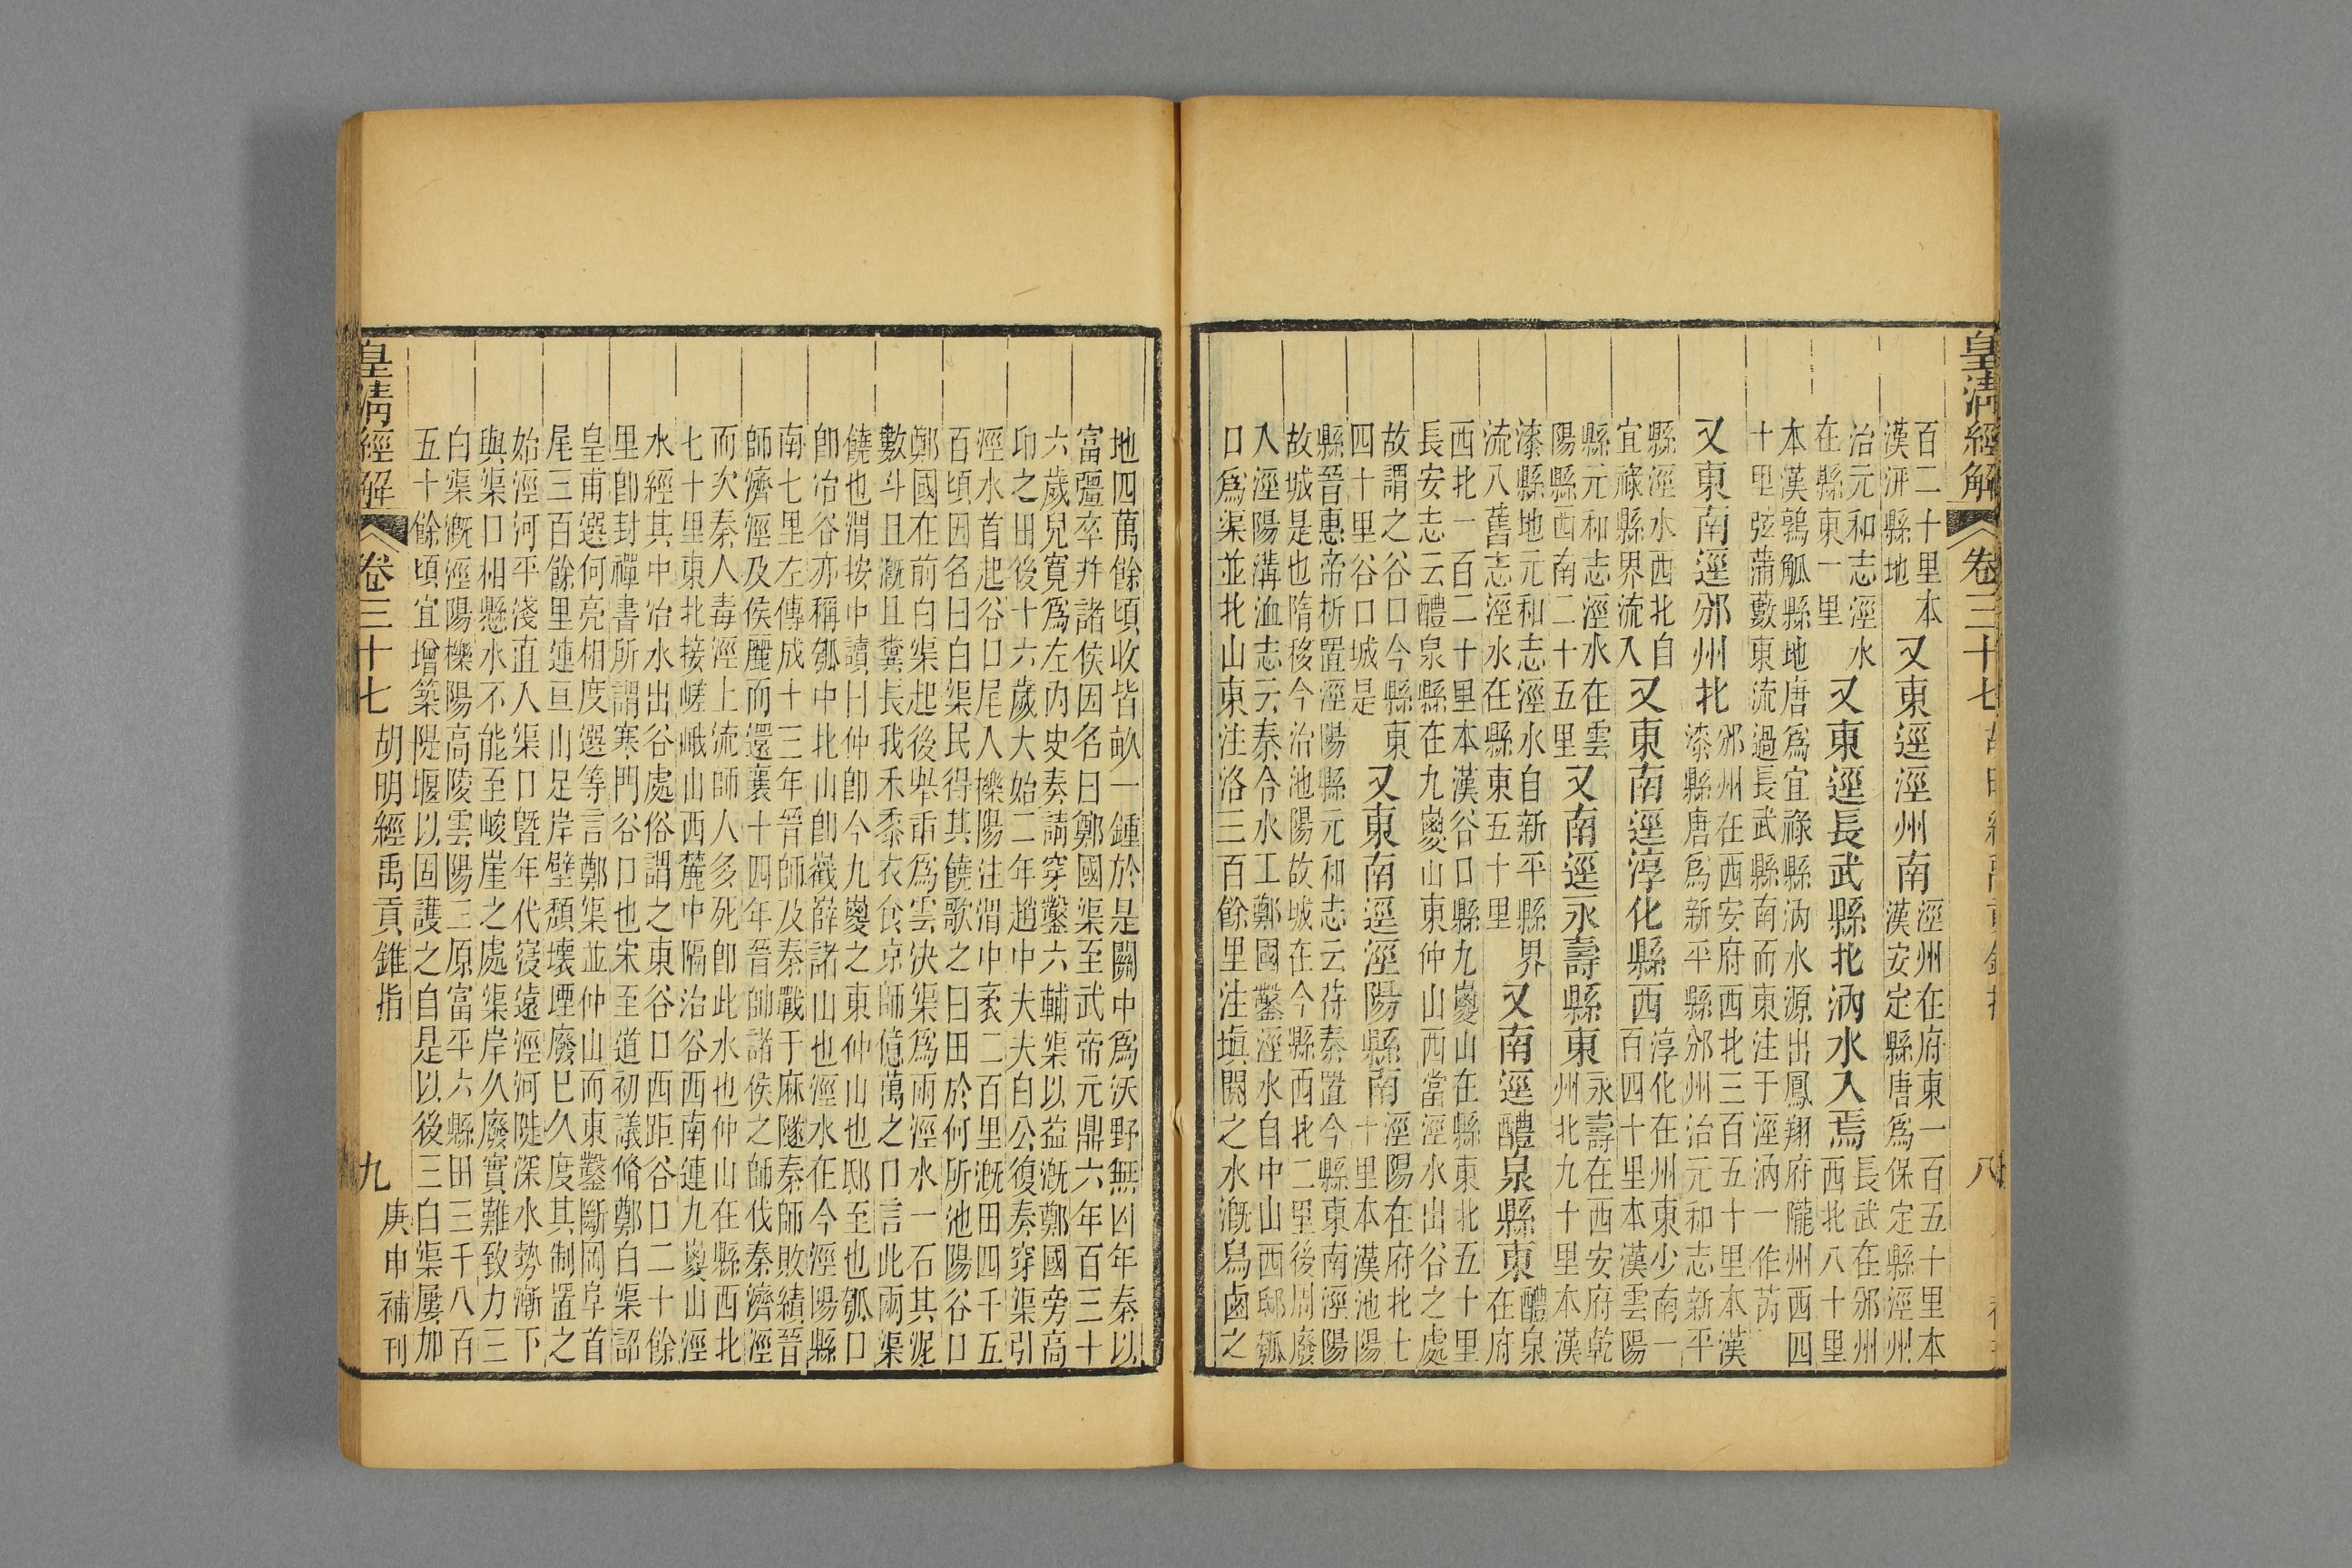 皇清經解 卷三十七 八
百二十里本
漢汧縣地
又東逕涇州南
涇州在府東一百五十里本
漢安定縣唐爲保定縣涇州
治元和志涇水
在縣東一里
又東逕長武縣北汭水入焉
長武在邠州
西北八十里
本漢鶉觚縣地唐爲宜祿縣汭水源出鳳翔府隴州西四
十里弦蒲藪東流過長武縣南而東注于涇汭一作芮
又東南逕邠州北
邠州在西安府西北三百五十里本漢
漆縣唐爲新平縣邠州治元和志新平
縣涇水西北自
宜祿縣界流入
又東南逕淳化縣西
淳化在州東少南一
百四十里本漢雲陽
縣元和志涇水在雲
陽縣西南二十五里
又南逕永壽縣東
永壽在西安府乾
州北九十里本漢
漆縣地元和志涇水自新平縣界
流八舊志涇水在縣東五十里
又南逕醴泉縣東
醴泉
在府
西北一百二十里本漢谷口縣九嵏山在縣東北五十里
長安志云醴泉縣在九嵏山東仲山西當涇水出谷之處
故謂之谷口今縣東
四十里谷口城是
又東南逕涇陽縣南
涇陽在府北七
十里本漢池陽
縣晉惠帝析置涇陽縣元和志云苻秦置今縣東南涇陽
故城是也隋移今治池陽故城在今縣西北二里後周廢
入涇陽溝洫志云秦令水工鄭國鑿涇水自中山西邸瓠
口爲渠並北山東注洛三百餘里注塡閼之水漑舄鹵之
地四萬餘頃收皆畝一鍾於是關中爲沃野無凶年秦以
富彊卒幷諸侯因名曰鄭國渠至武帝元鼎六年百三十
六歲兒寬爲左內史奏請穿鑿六輔渠以益漑鄭國旁高
卬之田後十六歲大始二年趙中大夫白公復奏穿渠引
涇水首起谷口尾入櫟陽注渭中袤二百里漑田四千五
百頃因名曰白渠民得其饒歌之曰田於何所池陽谷口
鄭國在前白渠起後舉臿爲雲決渠爲雨涇水一石其泥
數斗且漑且糞長我禾黍衣食京師億萬之口言此兩渠
饒也渭按中讀曰仲卽今九嵏之東仲山也邸至也瓠口
卽冶谷亦稱瓠中北山卽嶻嶭諸山也涇水在今涇陽縣
南七里左傳成十三年晉師及秦戰于麻隧秦師敗績晉
師濟涇及侯麗而還襄十四年晉帥諸侯之師伐秦濟涇
而次秦人毒涇上流師人多死卽此水也仲山在縣西北
七十里東北接嵯峨山西麓中隔治谷西南連九嵏山涇
水經其中冶水出谷處俗謂之東谷口西距谷口二十餘
里卽封禪書所謂寒門谷口也宋至道初議脩鄭白渠詔
皇甫選何亮相度選等言鄭渠並仲山而東鑿斷岡阜首
尾三百餘里連亘山足岸壁頹壞堙廢已久度其制置之
始涇河平淺直入渠口曁年代寖遠涇河陡深水勢漸下
與渠口相懸水不能至峻崖之處渠岸久廢實難致力三
白渠漑涇陽櫟陽高陵雲陽三原富平六縣田三千八百
五十餘頃宜增築隄堰以固護之自是以後三白渠屢加
皇清經解 卷三十七 胡明經禹貢錐指 九 庚申補刊